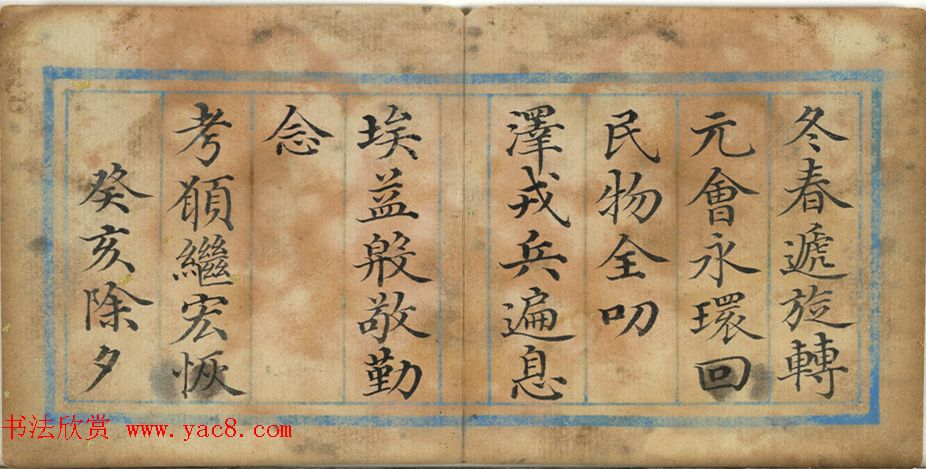 冬春遞旋轉
元會永環回
民物全叨
澤戎兵遍息
埃益殷敬勤
念
考頋繼宏恢
癸亥除夕
书法欣赏 www.yac8.com